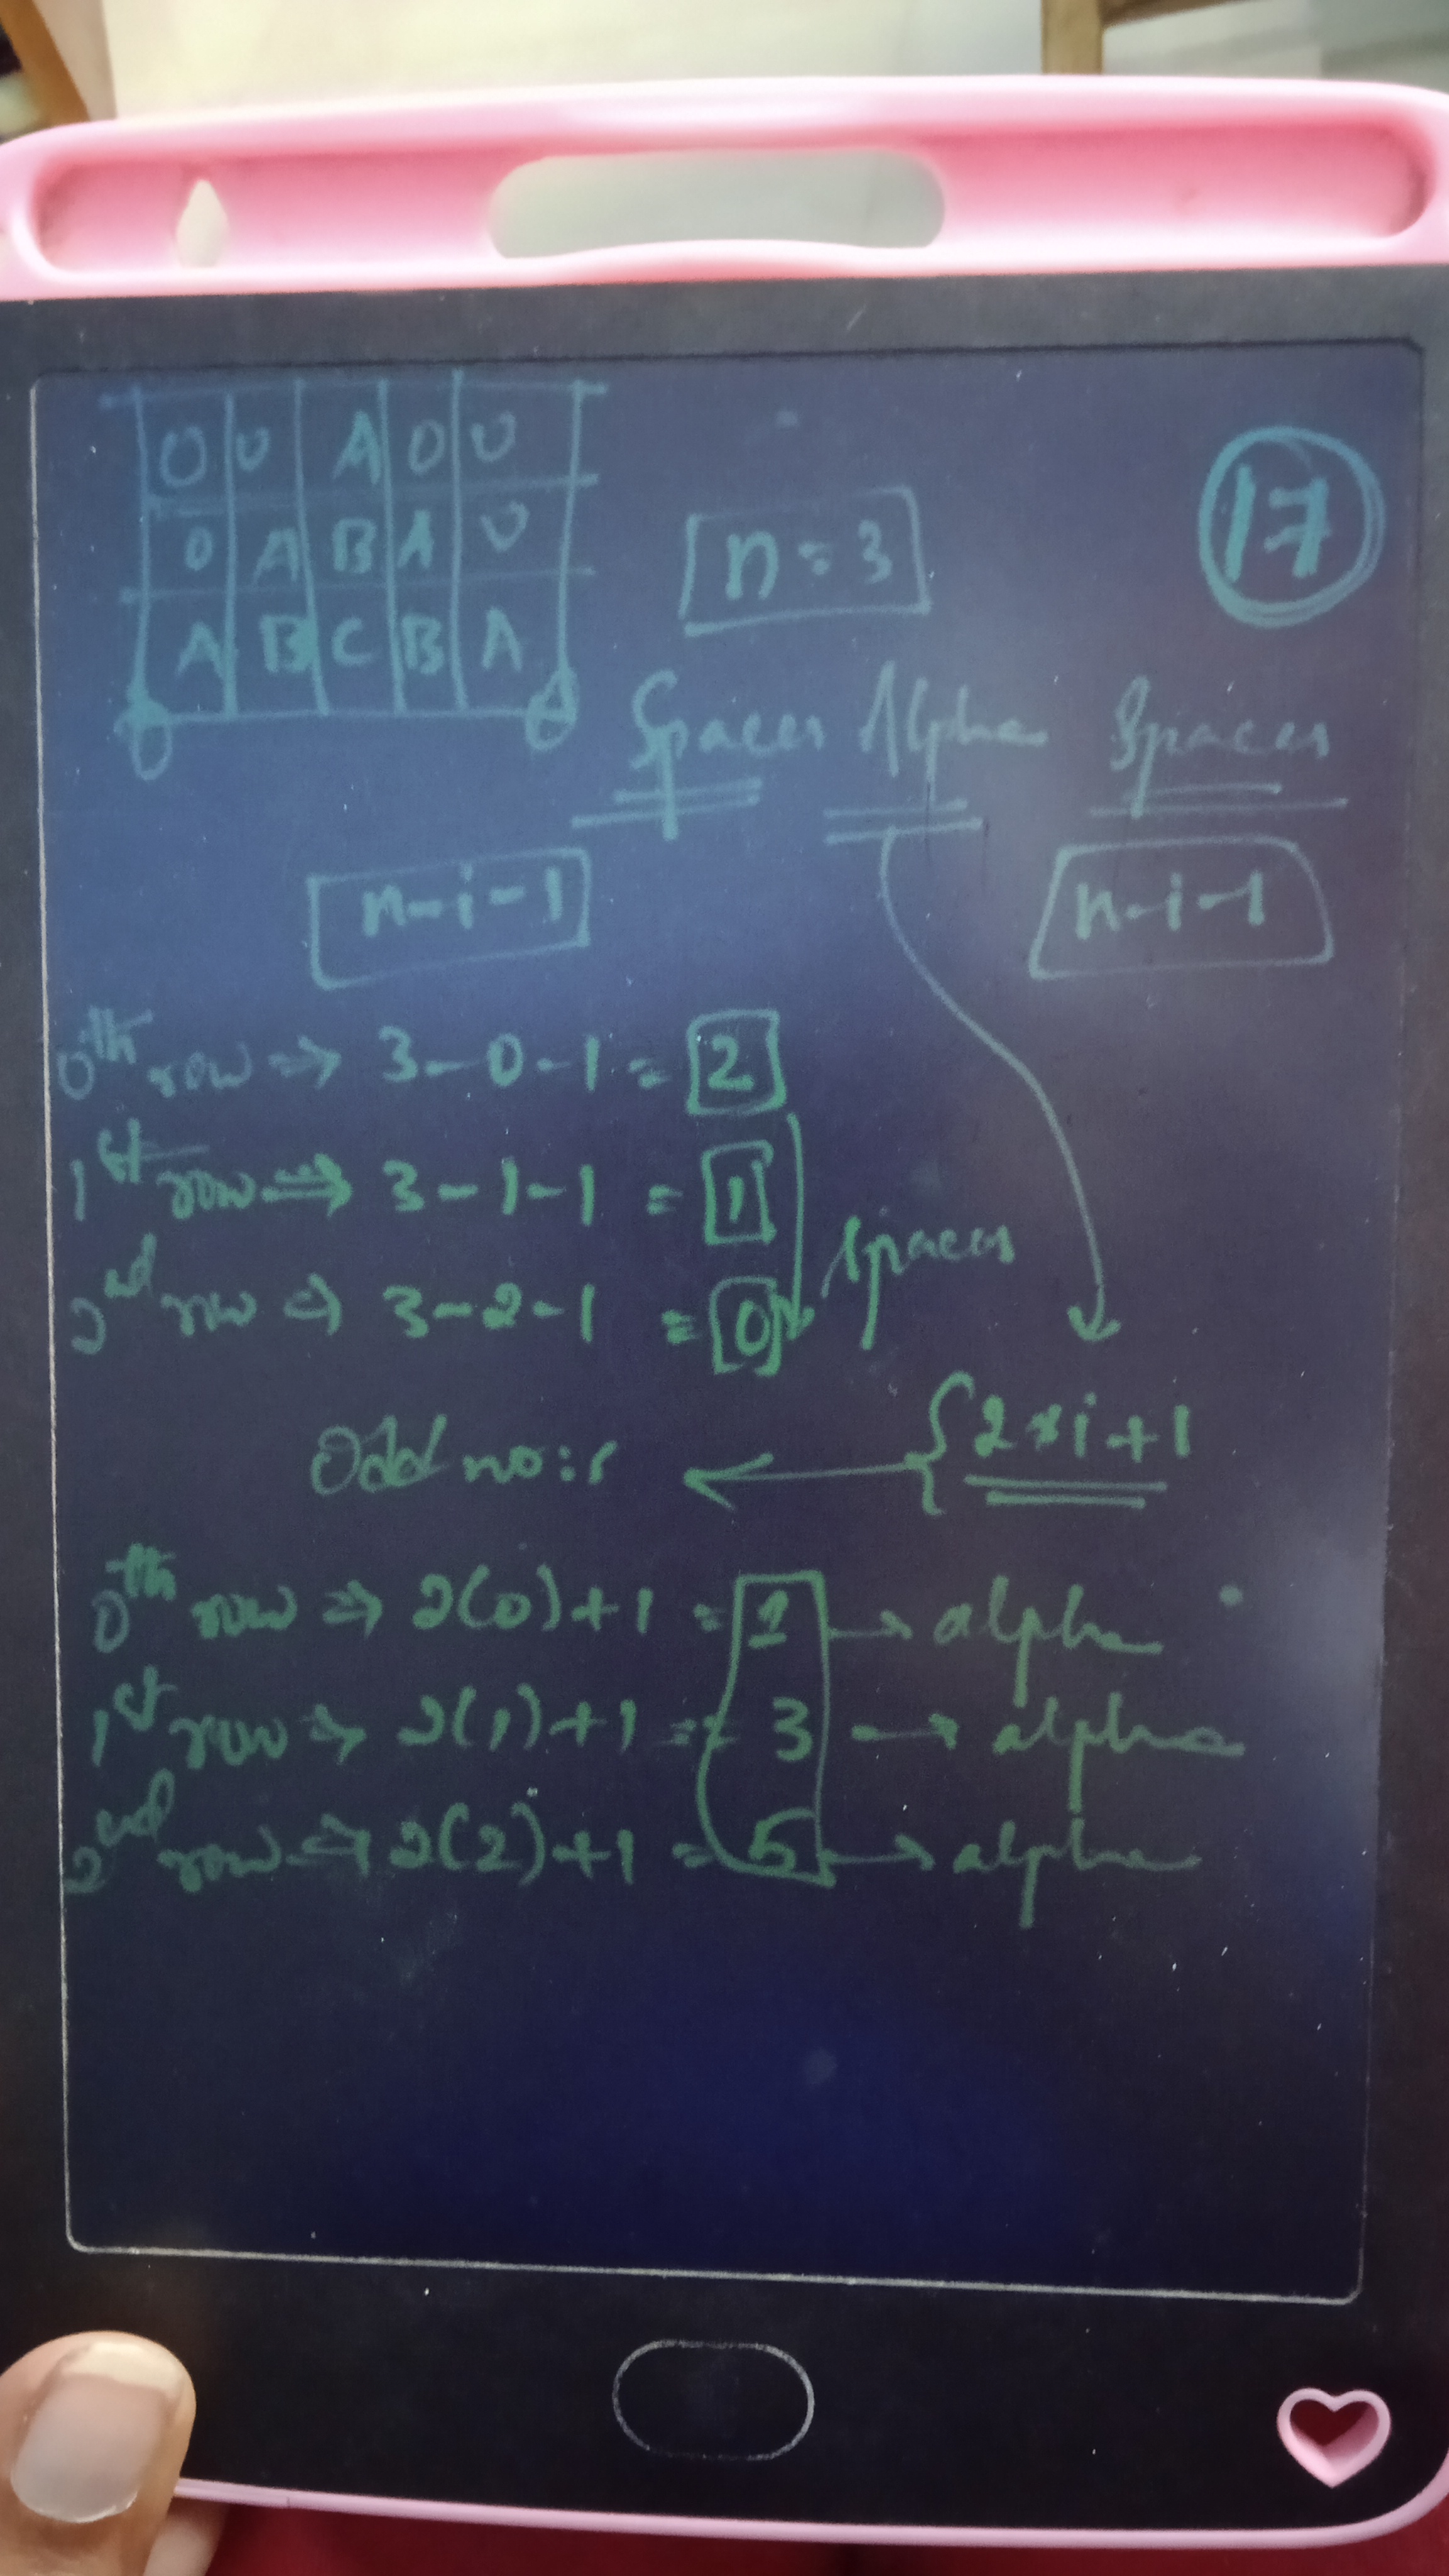 0 0 A 0 0
0 A B A 0
A B C B A
n = 3
17
Spaces Alpha Spaces
n-i-1 n-i-1
0th row ⇒ 3-0-1 = 2
1st row ⇒ 3-1-1 = 1
2nd row ⇒ 3-2-1 = 0
spaces
Odd no:s ← {2*i+1
0th row ⇒ 2(0)+1 = 1 → alpha
1st row ⇒ 2(1)+1 = 3 → alpha
2nd row ⇒ 2(2)+1 = 5 → alpha